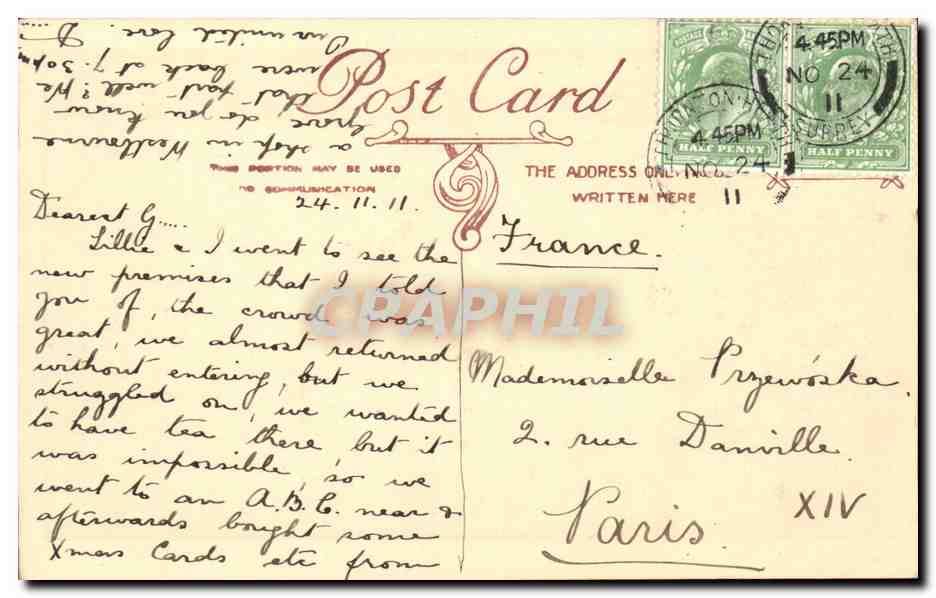 Post Card
THIS PORTION MAY BE USED
FOR COMMUNICATION
THE ADDRESS ONLY
WRITTEN HERE
24.11.11.
Dearest G.....
Lillie & I went to see the
new premises that I told
you of, the crowd was
great, we almost returned
without entering, but we
struggled on, we wanted
to have tea there, but it
was impossible, so we
went to an A.B.C. near &
afterwards bought some
Xmas Cards etc from
a shop in Westbourne
Grove do you know
that part well? We
were back at 7.30pm
Our united love. D.....
France.
Mademoiselle Przewóska.
2. rue Danville.
Paris.
XIV
POSTAGE
HALF PENNY
HALF PENNY
THORNTON HEATH
4.45PM
NO 24
11
SURREY
THORNTON HEATH
4.45PM
NO 24
11
CPAPHIL